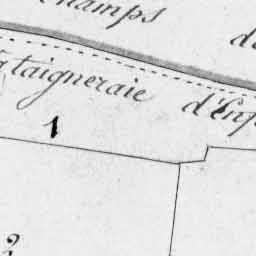 hamps de
taigneraie d'Enf
1
2